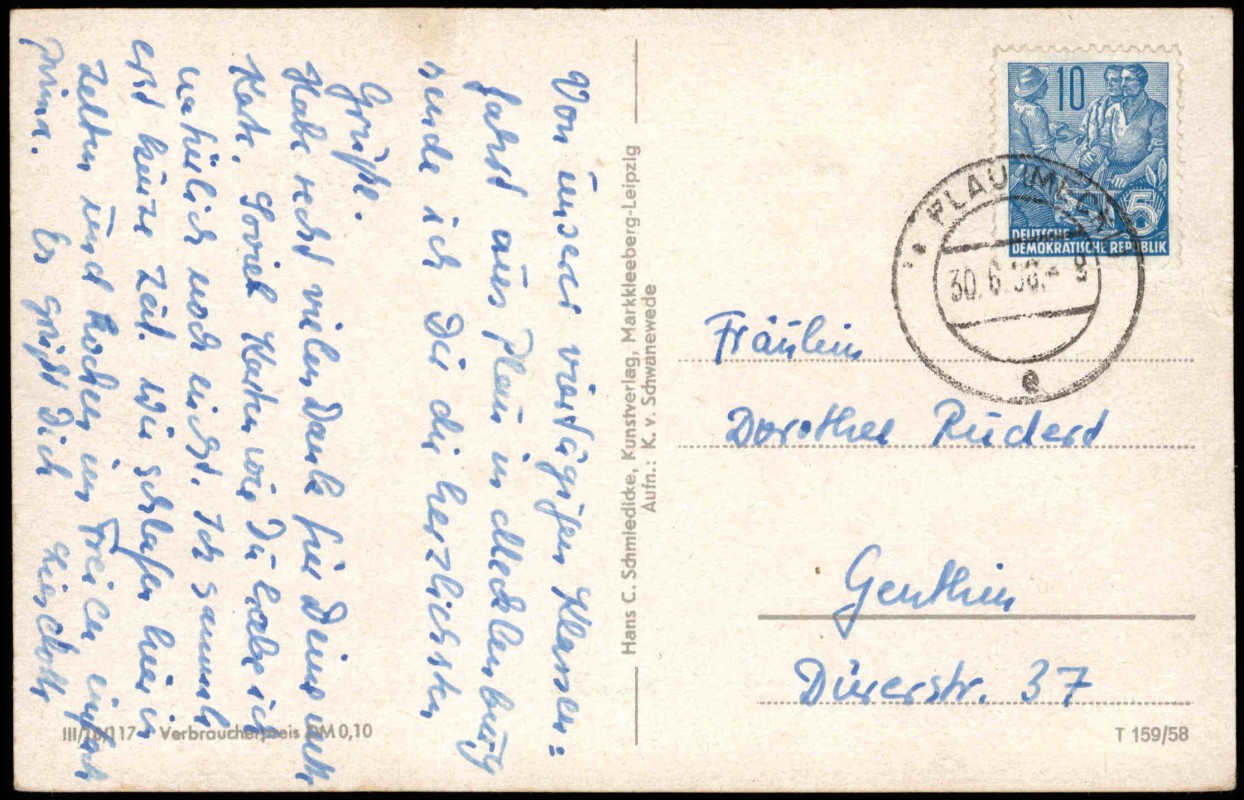 Von unserer viertägigen Klassen=
fahrt aus Plau in Mecklenburg
sende ich Dir die herzlichsten
Grüße.
Habe recht vielen Dank für Deine nette
Karte. Soviel Karten wie Du habe ich
natürlich noch nicht. Ich sammle
erst kurze Zeit. Wir schlafen hier in
Zelten und kochen im Freien. einfach
prima. Es grüßt Dich
Hans C. Schmiedicke, Kunstverlag, Markkleeberg-Leipzig
Aufn.: K. v. Schwanewede
10
DEUTSCHE
DEMOKRATISCHE REPUBLIK
5
PLAU (MECKL)
30.6.58.-9
e
Fräulein
Dorothee Rudert
Genthin
Dürerstr. 37
III/18/117 Verbraucherpreis DM 0,10
T 159/58